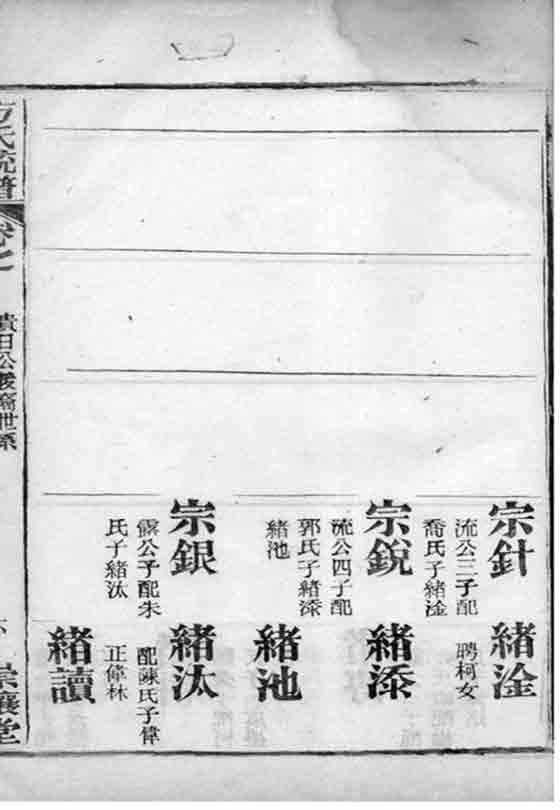 宗針
流公三子配
喬氏子緒淦
宗銳
流公四子配
郭氏子緒漆
緒池
宗銀
露公子配朱
氏子緒汰
緒淦
聘柯女
緒添
緒池
緒汰
配陳氏子偉
正偉林
緒讀
方氏統譜
卷七
貴日公後裔世系
六
崇讓堂